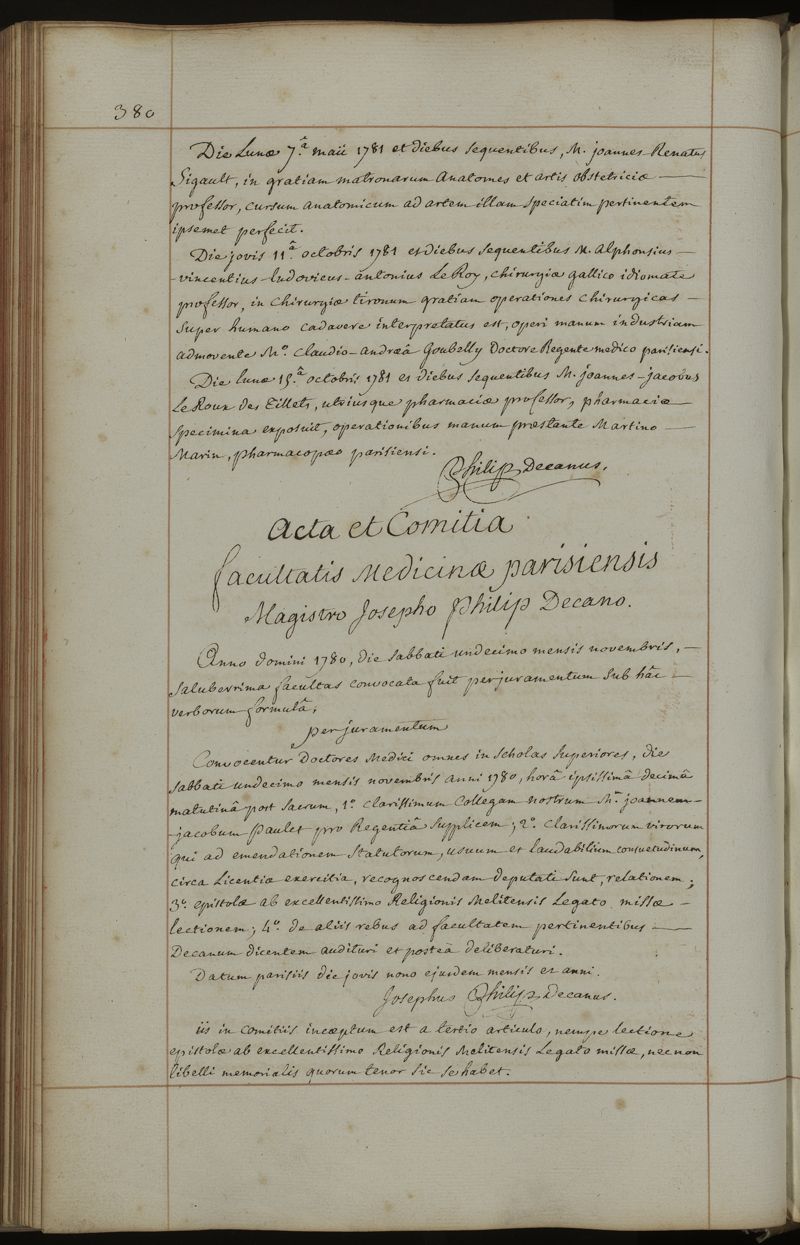 380
Die Lunæ 7.â maii 1781 et diebus sequentibus, M. joannes-Renatus
Sigault, in gratiam matronarum anatomes et artis obstetriciæ —
professor, cursum anatomicum ad artem illam speciatim pertinentem
ipsemet perfecit.
Die jovis 11.â octobris 1781 et diebus sequentibus M. Alphonsius —
-vincentius-ludovicus-antonius Le Roy, chirurgiæ gallico idiomate
professor, in chirurgiæ tironum gratiam operationes chirurgicas —
super humano cadavere interpretatus est, operi manum industriam
admovente M.º claudio-andreâ Goubelly Doctore Regente medico parisiensi.
Die lunæ 15.â octobris 1781 et diebus sequentibus M. joannes-jacobus
Le Roux des Tillets, utriusque pharmaciæ professor, pharmaciæ —
specimina exposuit, operationibus manum præstante Martino —
Marin, pharmacopæo parisiensi.
Philip Decanus.
Acta et Comitia
facultatis Medicinæ parisiensis
Magistro Josepho Philip Decano.
Anno domini 1780, die sabbati undecimo mensis novembris, —
saluberrima facultas convocata fuit per juramentum sub hâc —
verborum formulâ;
per juramentum
Convocentur Doctores Medici omnes in scholas superiores, die
sabbati undecimo mensis novembris anni 1780, horâ ipsissimâ decimâ
matutinâ post sacrum, 1.º clarissimum Collegam nostrum M.m joannem-
-jacobum Paulet pro Regentiâ supplicem; 2.º clarissimorum virorum
qui ad emendationem statutorum, usuum et laudabilium consuetudinum,
circa Licentiæ exercitia, recognoscendam deputati sunt, relationem;
3.º epistolæ ab excellentissimo Religionis Melitensis Legato missæ —
lectionem; 4.º de aliis rebus ad facultatem pertinentibus —
Decanum dicentem audituri et posteà deliberaturi.
Datum parisiis die jovis nono ejusdem mensis et anni.
Josephus Philip Decanus.
iis in comitiis incæptum est a tertio articulo, nempe lectione
epistolæ ab excellentissimo Religionis Melitensis Legato missæ, necnon
libelli memorialis quorum tenor sic se habet.